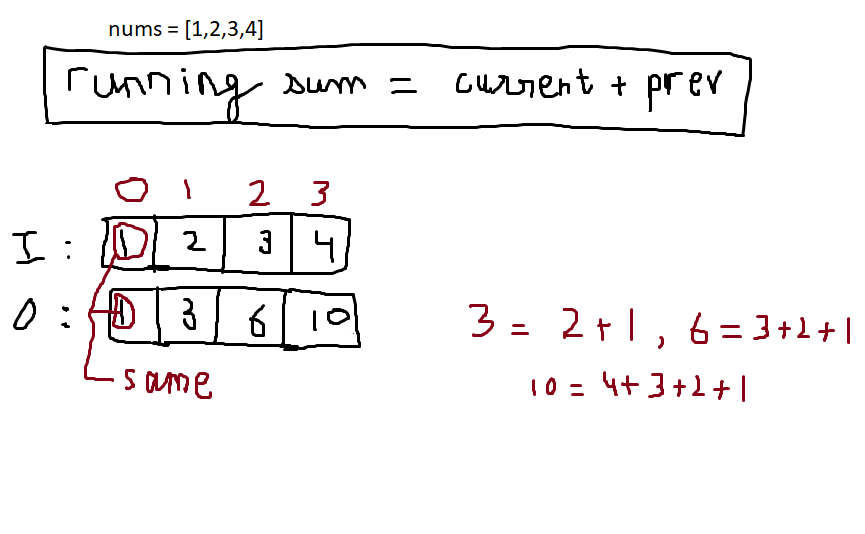 nums = [1,2,3,4]
running sum = current + prev
0 1 2 3
I : 1 2 3 4
O : 1 3 6 10
same
3 = 2+1, 6 = 3+2+1
10 = 4+3+2+1